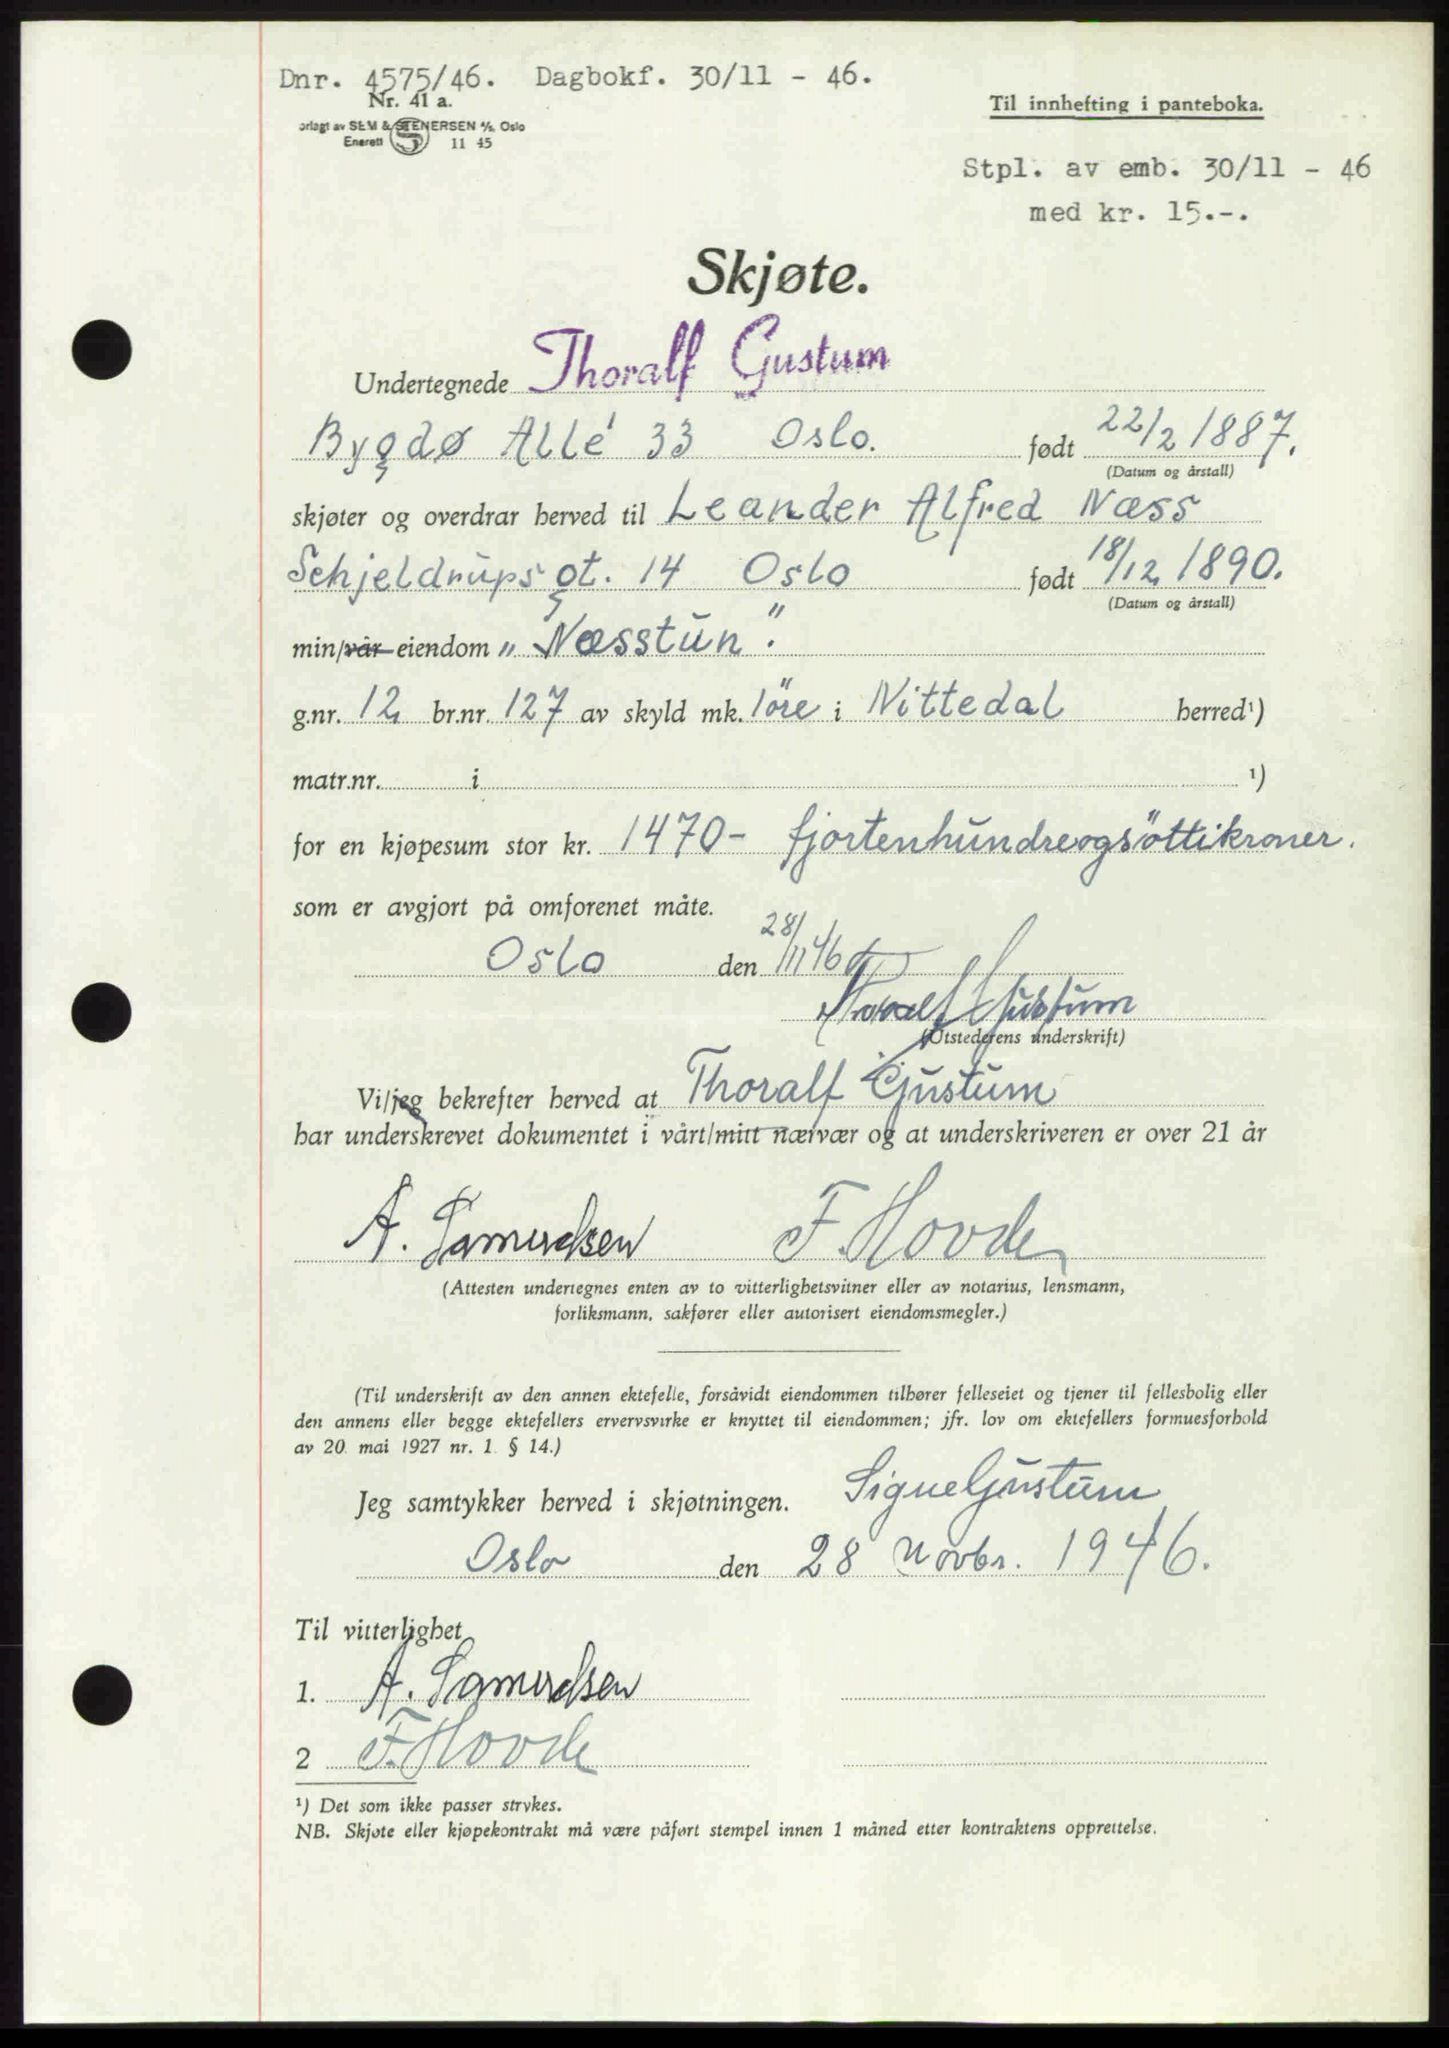 Dnr. 4575/46. Dagbokf. 30/11 - 46.
Nr. 41 a.
orlagt av SEM & STENERSEN A/S, Oslo
Enerett S 11 45
Til innhefting i panteboka.
Stpl. av emb. 30/11 - 46
med kr. 15.-.
Skjøte.
Undertegnede Thoralf Gustum
Bygdø Allé 33 Oslo. født 22/2 1887.
(Datum og årstall)
skjøter og overdrar herved til Leander Alfred Næss
Schjeldrups gt. 14 Oslo født 18/12 1890.
(Datum og årstall)
min/vår eiendom „Næsstun".
g.nr. 12 br.nr. 127 av skyld mk. 1öre i Nittedal herred¹)
matr.nr. i ¹)
for en kjøpesum stor kr. 1470- fjortenhundreogsöttikroner.
som er avgjort på omforenet måte.
Oslo den 28/11 46
Thoralf Gustum
(Utstederens underskrift)
Vi/jeg bekrefter herved at Thoralf Gjustum
har underskrevet dokumentet i vårt/mitt nærvær og at underskriveren er over 21 år
A. F. Hovde
(Attesten undertegnes enten av to vitterlighetsvitner eller av notarius, lensmann,
forliksmann, sakfører eller autorisert eiendomsmegler.)
(Til underskrift av den annen ektefelle, forsåvidt eiendommen tilhører felleseiet og tjener til fellesbolig eller
den annens eller begge ektefellers ervervsvirke er knyttet til eiendommen; jfr. lov om ektefellers formuesforhold
av 20. mai 1927 nr. 1 § 14.)
Jeg samtykker herved i skjøtningen. Signe Gjustum
Oslo den 28 Novbr. 1946.
Til vitterlighet
1. A.
2 F. Hovde
¹) Det som ikke passer strykes.
NB. Skjøte eller kjøpekontrakt må være påført stempel innen 1 måned etter kontraktens opprettelse.